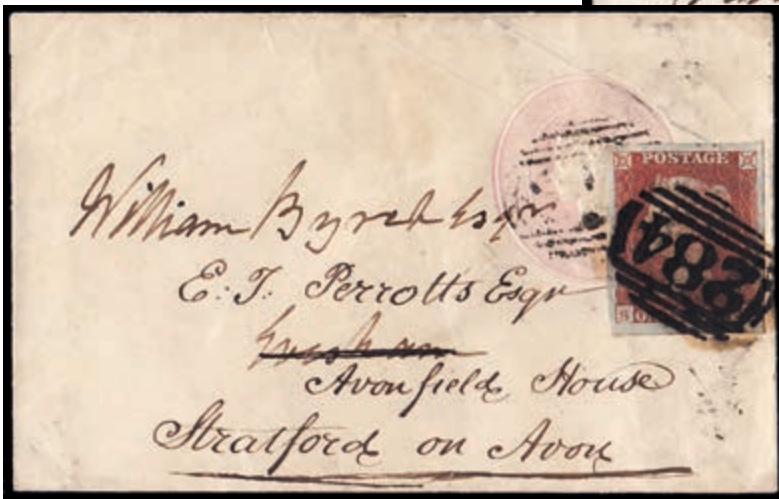 POSTAGE
284
William Byrch Esqr
E. T. Perrotts Esqr
Evesham
Avonfield House
Stratford on Avon